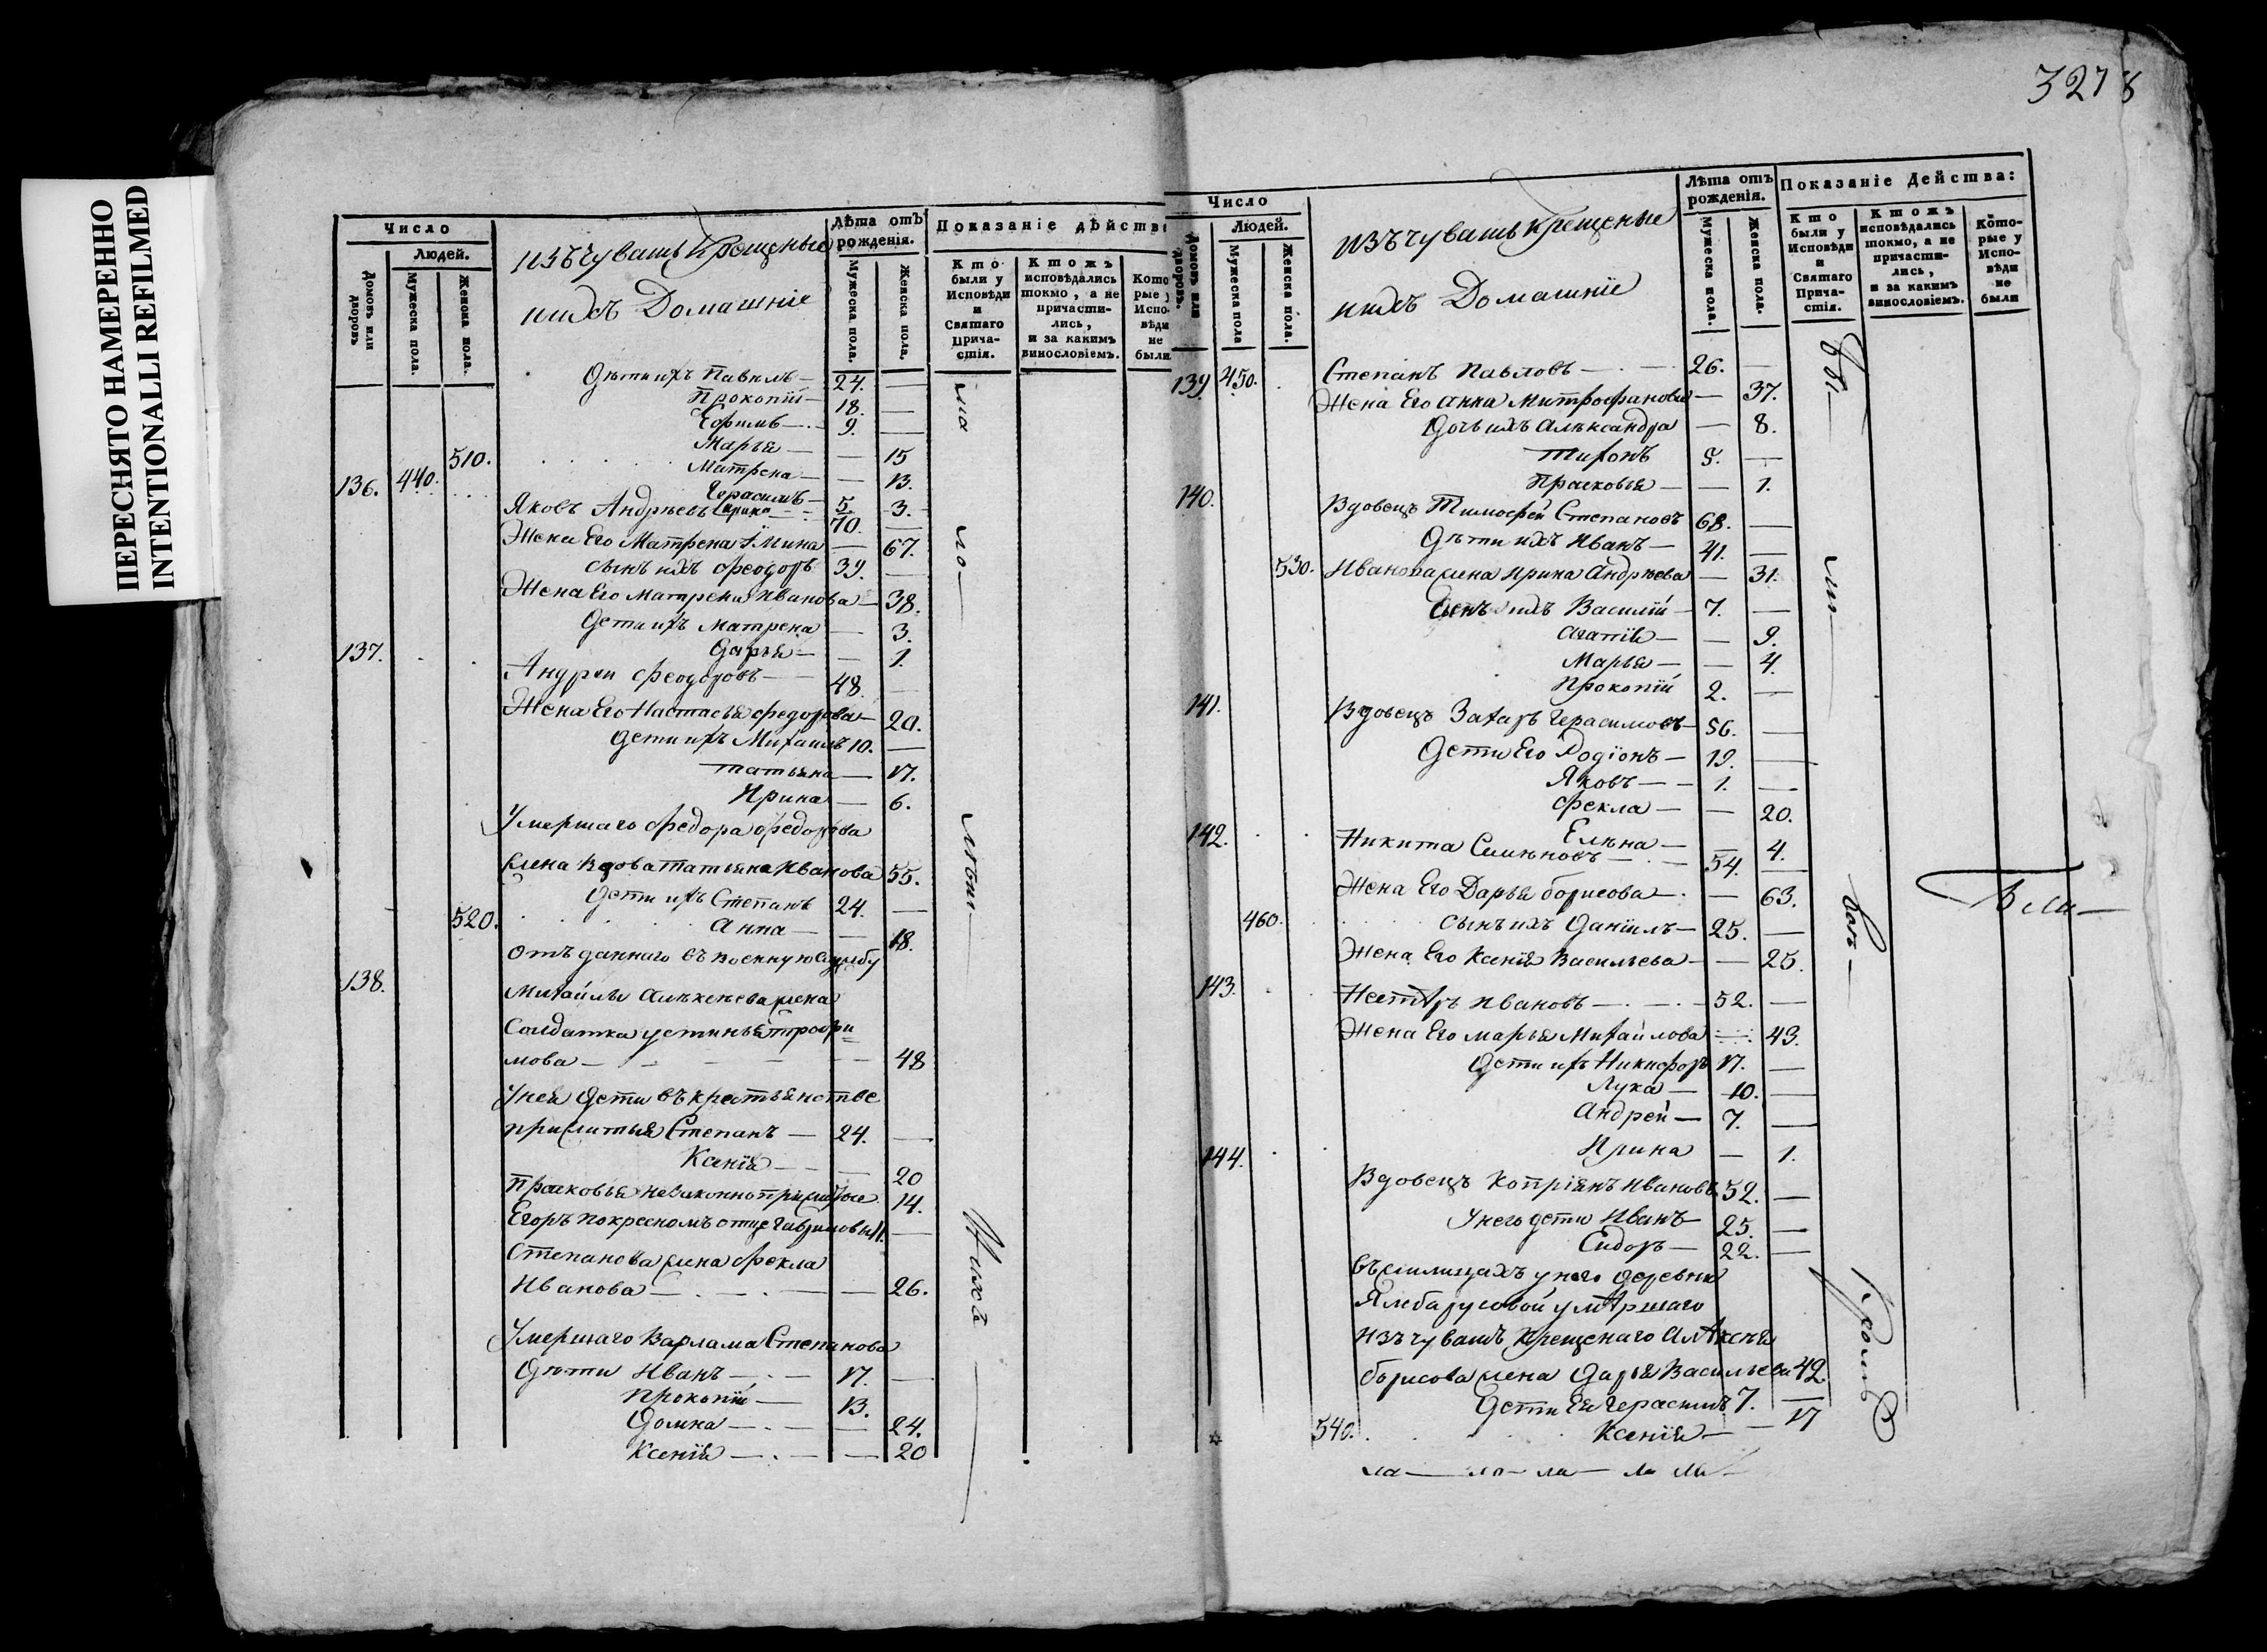 ПЕРЕСНЯТО НАМЕРЕННО
INTENTIONALLI REFILMED
Число
Людей.
Домовъ или дворовъ
Мужеска пола.
Женска пола.
изъ чувашъ Крещеные
ихъ Домашніе
Лѣта отъ рожденія.
Мужеска пола.
Женска пола.
Показаніе дѣйств
Кто были у Исповѣди и Святаго Прича-стія.
Ктожъ исповѣдались токмо, а не причасти-лись, и за какимъ винословіемъ.
Кото рые у Испо-вѣди не были
Дѣти ихъ Павилъ — 24. —
Прокопій — 18. —
Ефимъ — 9. —
510. Марья — — 15
Матрена — — 13.
136. 440. Герасимъ — 5.
Ирина — 3.
Яковъ Андрѣевъ 70. —
Жена Его Матрена — 67.
сынъ ихъ Феодоръ 39. —
Жена Его Матрена Иванова — 38.
Дети ихъ Матрена — 3.
Дарья — — 1.
137. Андрей Феодоровъ — 48. —
Жена Его Настасья Федорова — 20.
Дети ихъ Михаилъ 10. —
Татьяна — 17.
Ирина — 6.
Умершаго Федора Федорова
жена вдова Татьяна Иванова 55.
Дети ихъ Степанъ 24. —
520. Анна — — 18.
отъ даннаго въ военную службу
138. Михайлы Алѣксеева жена
Солдатка устинья Трофи=
мова — — — 48
Унея Дети въ крестьянстве
прижитыя Степанъ — 24. —
Ксенія — — 20
Прасковья незаконноприжитое 14.
Егоръ покресномъ отце Гаврилов 11. —
Степанова жена Фекла
Иванова — — 26.
Умершаго Варлама Степанова
Дѣти Иванъ — 17. —
Прокопій — 13.
Домна — — 24.
Ксенія — — 20
Число
Людей.
Домовъ или дворовъ.
Мужеска пола
Женска пола.
изъ чувашъ Крещеные
ихъ Домашніе
Лѣта отъ рожденія.
Мужеска пола.
Женска пола.
Показаніе Действа:
Кто были у Исповѣди и Святаго Прича-стія.
Ктожъ исповѣдались токмо, а не причасти-лись, и за какимъ винословіемъ.
Кото-рые у Испо-вѣди не были
139 450. Степанъ Павловъ — 26. —
Жена Его Анна Митрофанова — 37.
Дочь ихъ Алѣксандра — 8.
Тихонъ 5. —
Прасковья — — 1.
140. Вдовецъ Тимофей Степановъ 68. —
Дѣти ихъ Иванъ — 41. —
530. Иванова жена Ирина Андрѣева — 31.
Сынъ ихъ Василій — 7. —
Агапія — — 9.
Марья — — 4.
Прокопій 2. —
141. Вдовецъ Захаръ Герасимовъ — 56. —
Дети Его Родіонъ — 19. —
Яковъ — 1. —
Фекла — — 20.
Елѣна — — 4.
142. Никита Семѣновъ — 54. —
Жена Его Дарья борисова — 63.
460. сынъ ихъ Даніилъ — 25. —
Жена Его Ксенія Васильева — — 25.
143. Нестеръ Ивановъ — 52. —
Жена Его марья Михайлова — 43.
Дети ихъ Никифоръ 17. —
Лука — 10. —
Андрей — 7. —
Ирина — 1.
144. Вдовецъ Копріянъ Ивановъ 52. —
Унего дети Иванъ — 25. —
Сидоръ — 22. —
въ жилищахъ у него деревни
умершаго
изъ чувашъ крещенаго Алексѣя
борисова жена Дарья Васильева 42.
Дети Ея Герасимъ 7. —
540. Ксенія — — 17